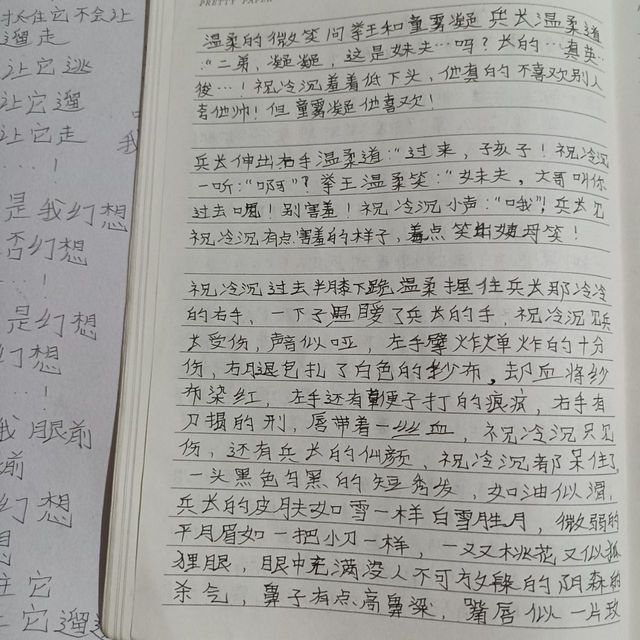 PRETTY PAPER
温柔的微笑问拳王和童雾凝 兵长温柔道
“二弟，凝凝，这是妹夫…吗？长的…真英
俊…！祝冷沉羞着低下头，他真的不喜欢别人
夸他帅！但童雾凝他喜欢！
兵长伸出右手温柔道：“过来，子孩子！祝冷沉
一听：“啊”？拳王温柔笑：“妹夫，大哥叫你
过去呢！别害羞！祝冷沉小声：“哦”！兵长见
祝冷沉有点害羞的样子，差点笑出姨母笑！
祝冷沉过去半膝下跪温柔握住兵长那冷冷
的右手，一下子温暖了兵长的手，祝冷沉见兵
长受伤，声音似哑，左手臂炸弹炸的十分
伤，右腿包扎了白色的纱布，却血将纱
布染红，左手还有鞭子打的痕痕，右手有
刀损的刑，唇带着一丝血，祝冷沉只见
伤，还有兵长的仙颜，祝冷沉都呆住了，
一头黑色匀黑的短秀发，如油似滑，
兵长的皮肤如雪一样白雪胜月，微弱的
平月眉如一把小刀一样，一双桃花又似狐
狸眼，眼中充满没人不可放过的阴森的
杀气，鼻子有点高鼻梁，嘴唇似一片玫
讨厌它不会让
遛走
让它逃
让它遛
让它走
我
是我幻想
否幻想
是幻想
幻想
我眼前
前
幻想
想
住它
让它遛